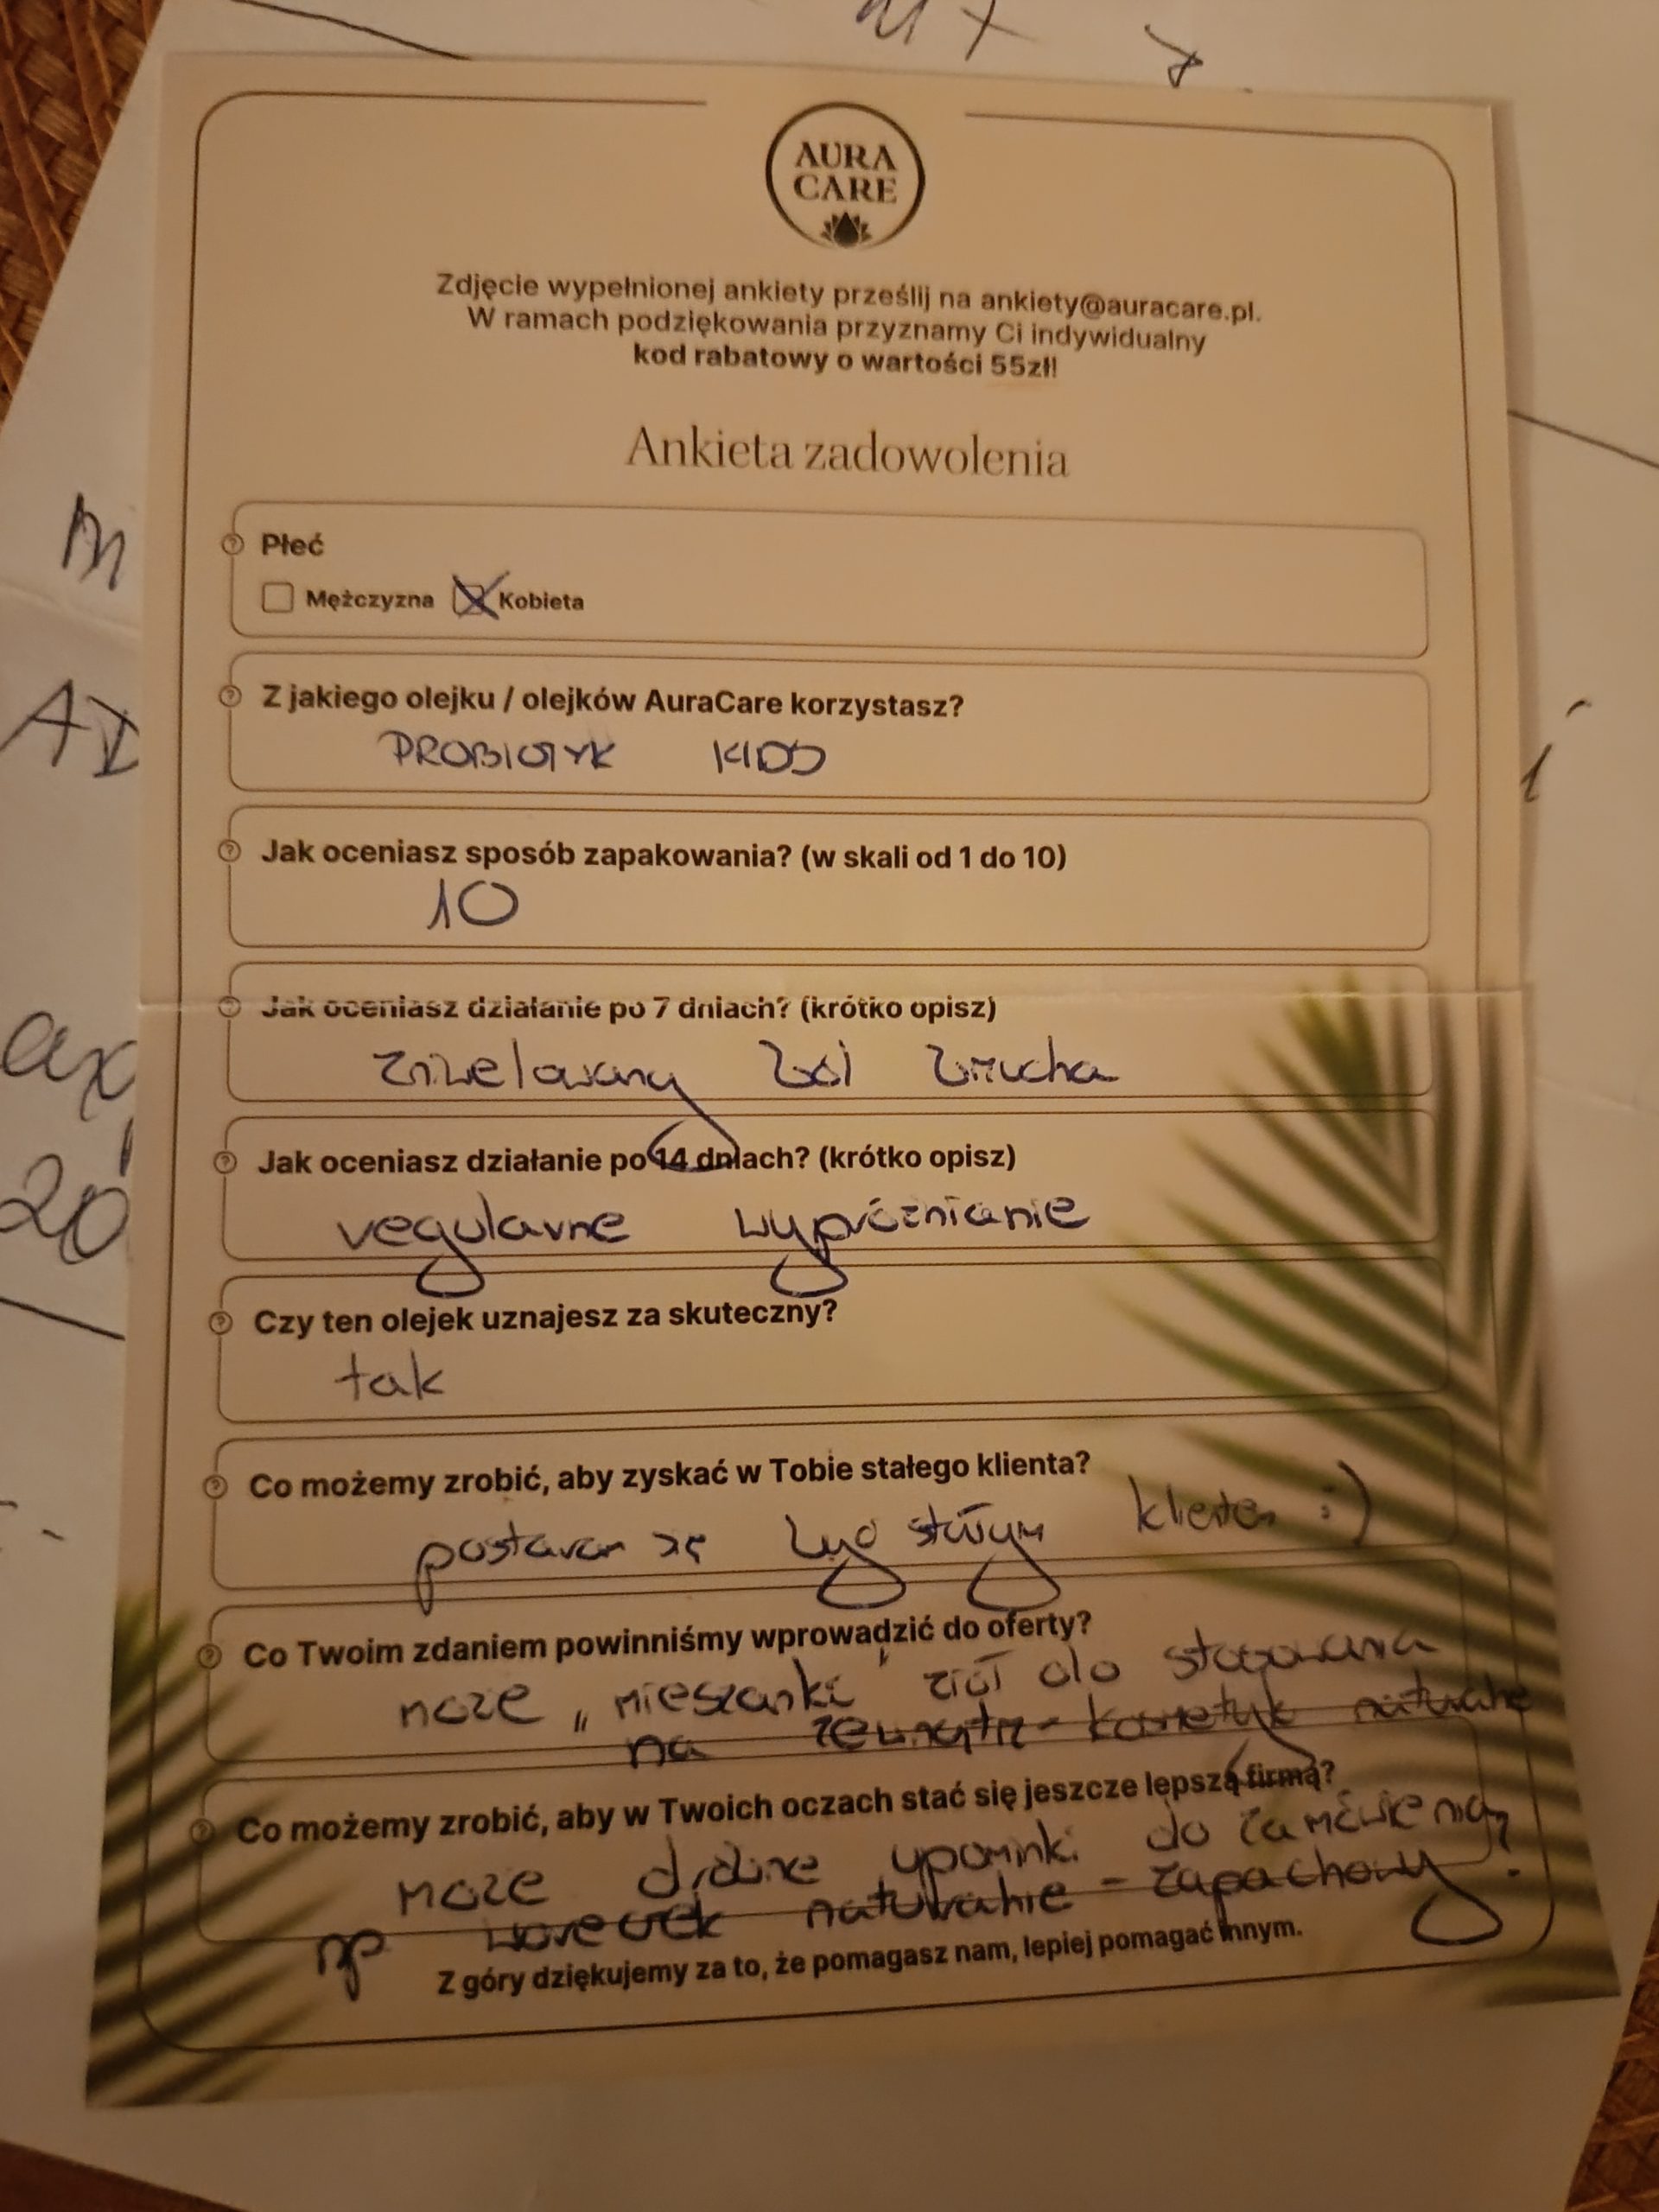 AURA
CARE
Zdjęcie wypełnionej ankiety prześlij na ankiety@auracare.pl.
W ramach podziękowania przyznamy Ci indywidualny
kod rabatowy o wartości 55zł!
Ankieta zadowolenia
Płeć
Mężczyzna Kobieta
Z jakiego olejku / olejków AuraCare korzystasz?
PROBIOTYK KIDS
Jak oceniasz sposób zapakowania? (w skali od 1 do 10)
10
Jak oceniasz działanie po 7 dniach? (krótko opisz)
zniwelowany ból brzucha
Jak oceniasz działanie po 14 dniach? (krótko opisz)
regularne wypróżnianie
Czy ten olejek uznajesz za skuteczny?
tak
Co możemy zrobić, aby zyskać w Tobie stałego klienta?
postaram się być stałym klientem :)
Co Twoim zdaniem powinniśmy wprowadzić do oferty?
może "mieszanki" ziół do stosowania
na zewnątrz - kosmetyki naturalne
Co możemy zrobić, aby w Twoich oczach stać się jeszcze lepszą firmą?
może drobne upominki do zamówienia?
np woreczek naturalnie - zapachowy.
Z góry dziękujemy za to, że pomagasz nam, lepiej pomagać innym.